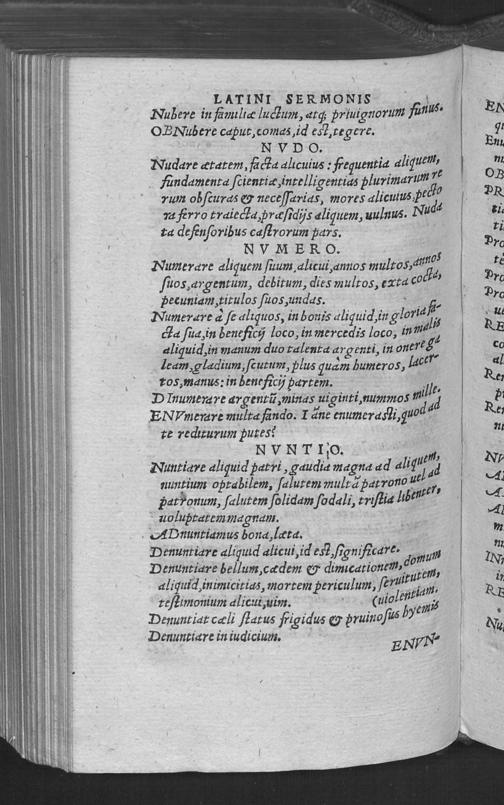 LATINI SERMONIS
Nubere in familiæ luctum, atq; priuignorum funus.
OBNubere caput, comas, id est, tegere.
NVDO.
Nudare ætatem, facta alicuius: frequentia aliquem,
fundamenta scientiæ, intelligentias plurimarum re
rum obscuras & necessarias, mores alicuius, pecto
ra ferro traiecta, præsidijs aliquem, uulnus. Nuda
ta defensoribus castrorum pars.
NVMERO.
Numerare aliquem suum, alicui, annos multos, annos
suos, argentum, debitum, dies multos, exta cocta,
pecuniam, titulos suos, undas.
Numerare à se aliquos, in bonis aliquid, in gloria fa-
cta sua, in beneficij loco, in mercedis loco, in malis
aliquid, in manum duo talenta argenti, in onere ga
leam, gladium, scutum, plus quàm humeros, lacer-
tos, manus: in beneficij partem.
DInumerare argentū, minas uiginti, nummos mille.
ENVmerare multa fando. Iāne enumerasti, quod ad
te rediturum putes?
NVNTIO.
Nuntiare aliquid patri, gaudia magna ad aliquem,
nuntium optabilem, salutem multā patrono uel ad
patronum, salutem solidam sodali, tristia libenter,
uoluptatem magnam.
ADnuntiamus bona, læta.
Denuntiare aliquid alicui, id est, significare.
Denuntiare bellum, cædem & dimicationem, domum
aliquid, inimicitias, mortem periculum, seruitutem,
testimonium alicui, uim. (uiolentiam.
Denuntiat cæli status frigidus & pruinosus byemis
Denuntiare in iudicium.
ENVN-